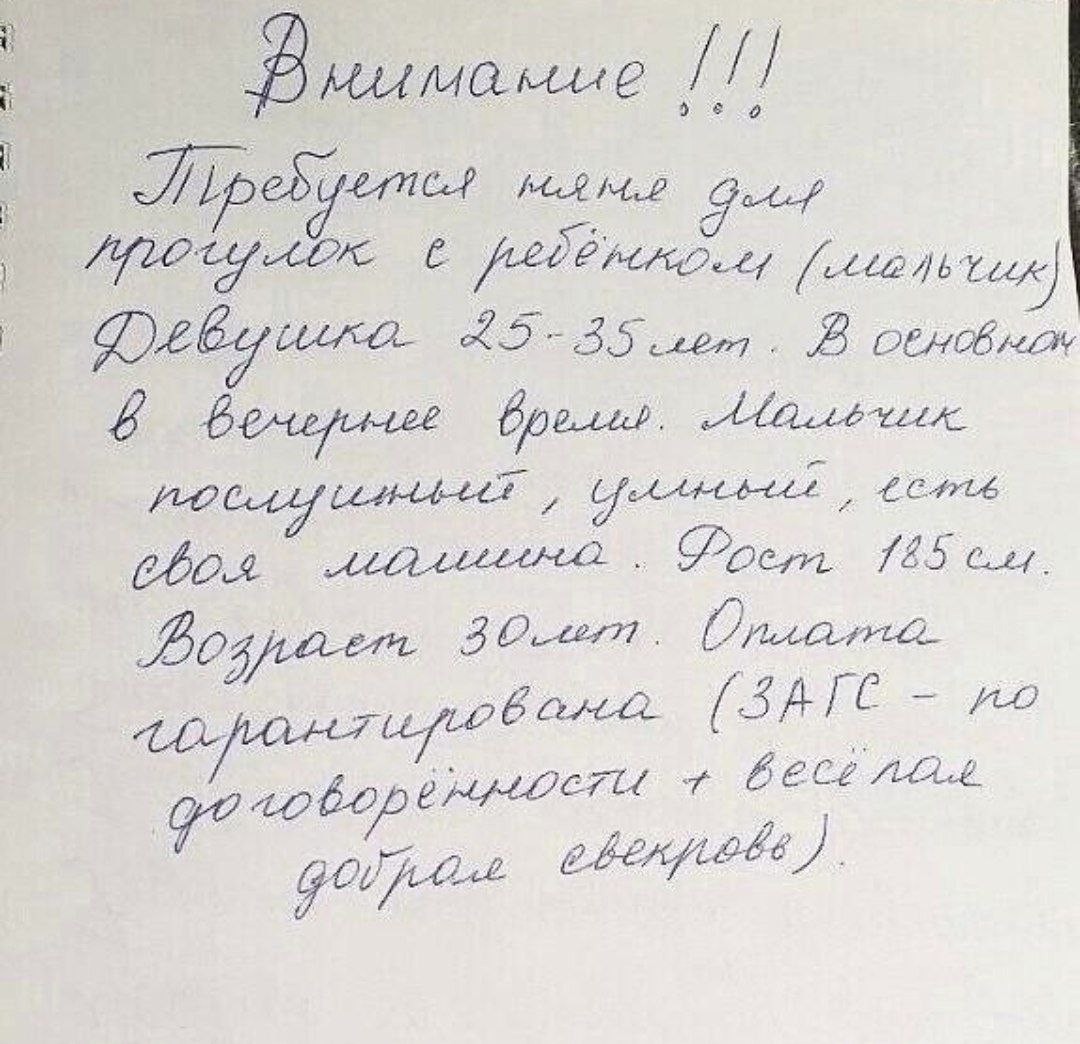 Внимание !!!
Требуется няня для
прогулок с ребёнком (мальчик)
Девушка 25-35 лет. В основном
в вечернее время. Мальчик
послушный, умный, есть
своя машина. Рост 185 см.
Возраст 30 лет. Оплата
гарантирована (ЗАГС - по
договорённости + весёлая
добрая свекровь).